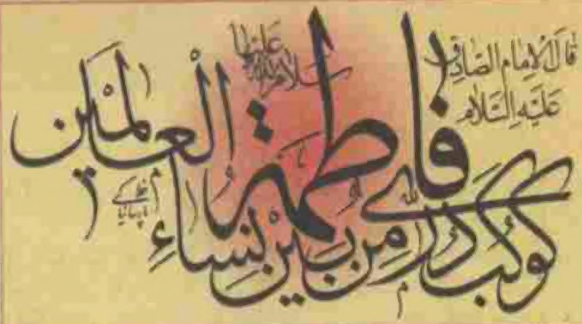 قال الإمام الصادق
عَلَيْهِ السَّلام
فاطمة
سلام الله عليها
كوكب درّي من بين نساءِ العالمين